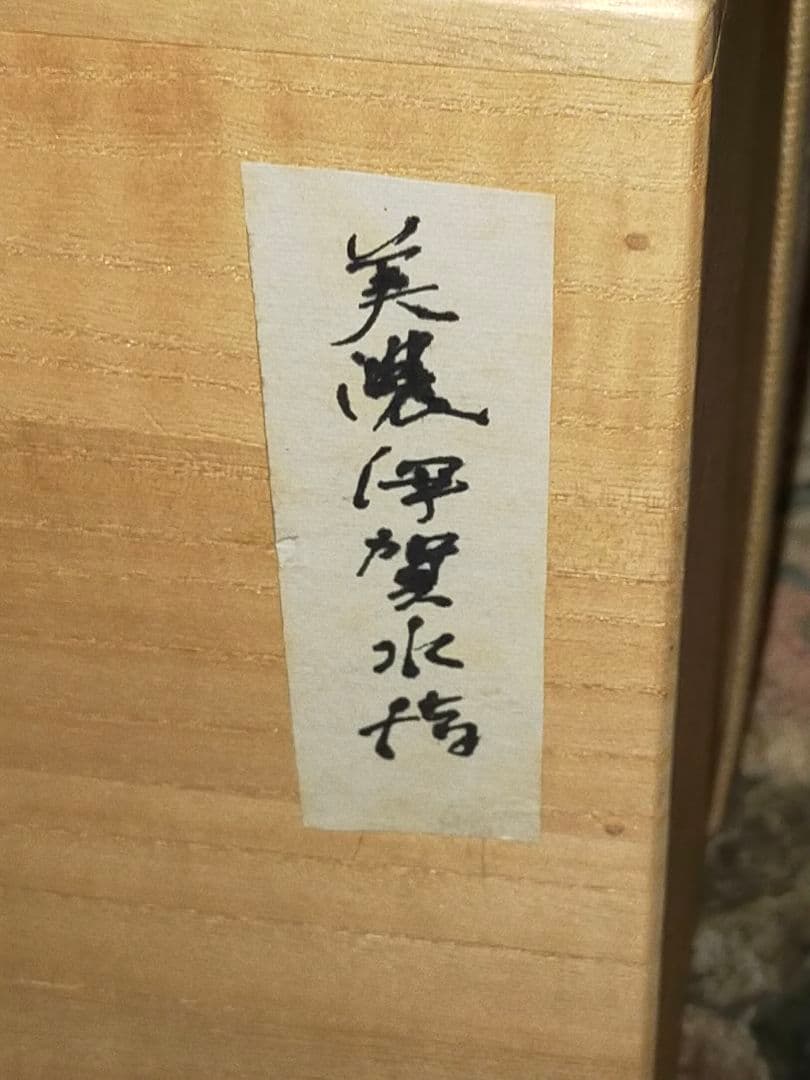 美濃伊賀水指